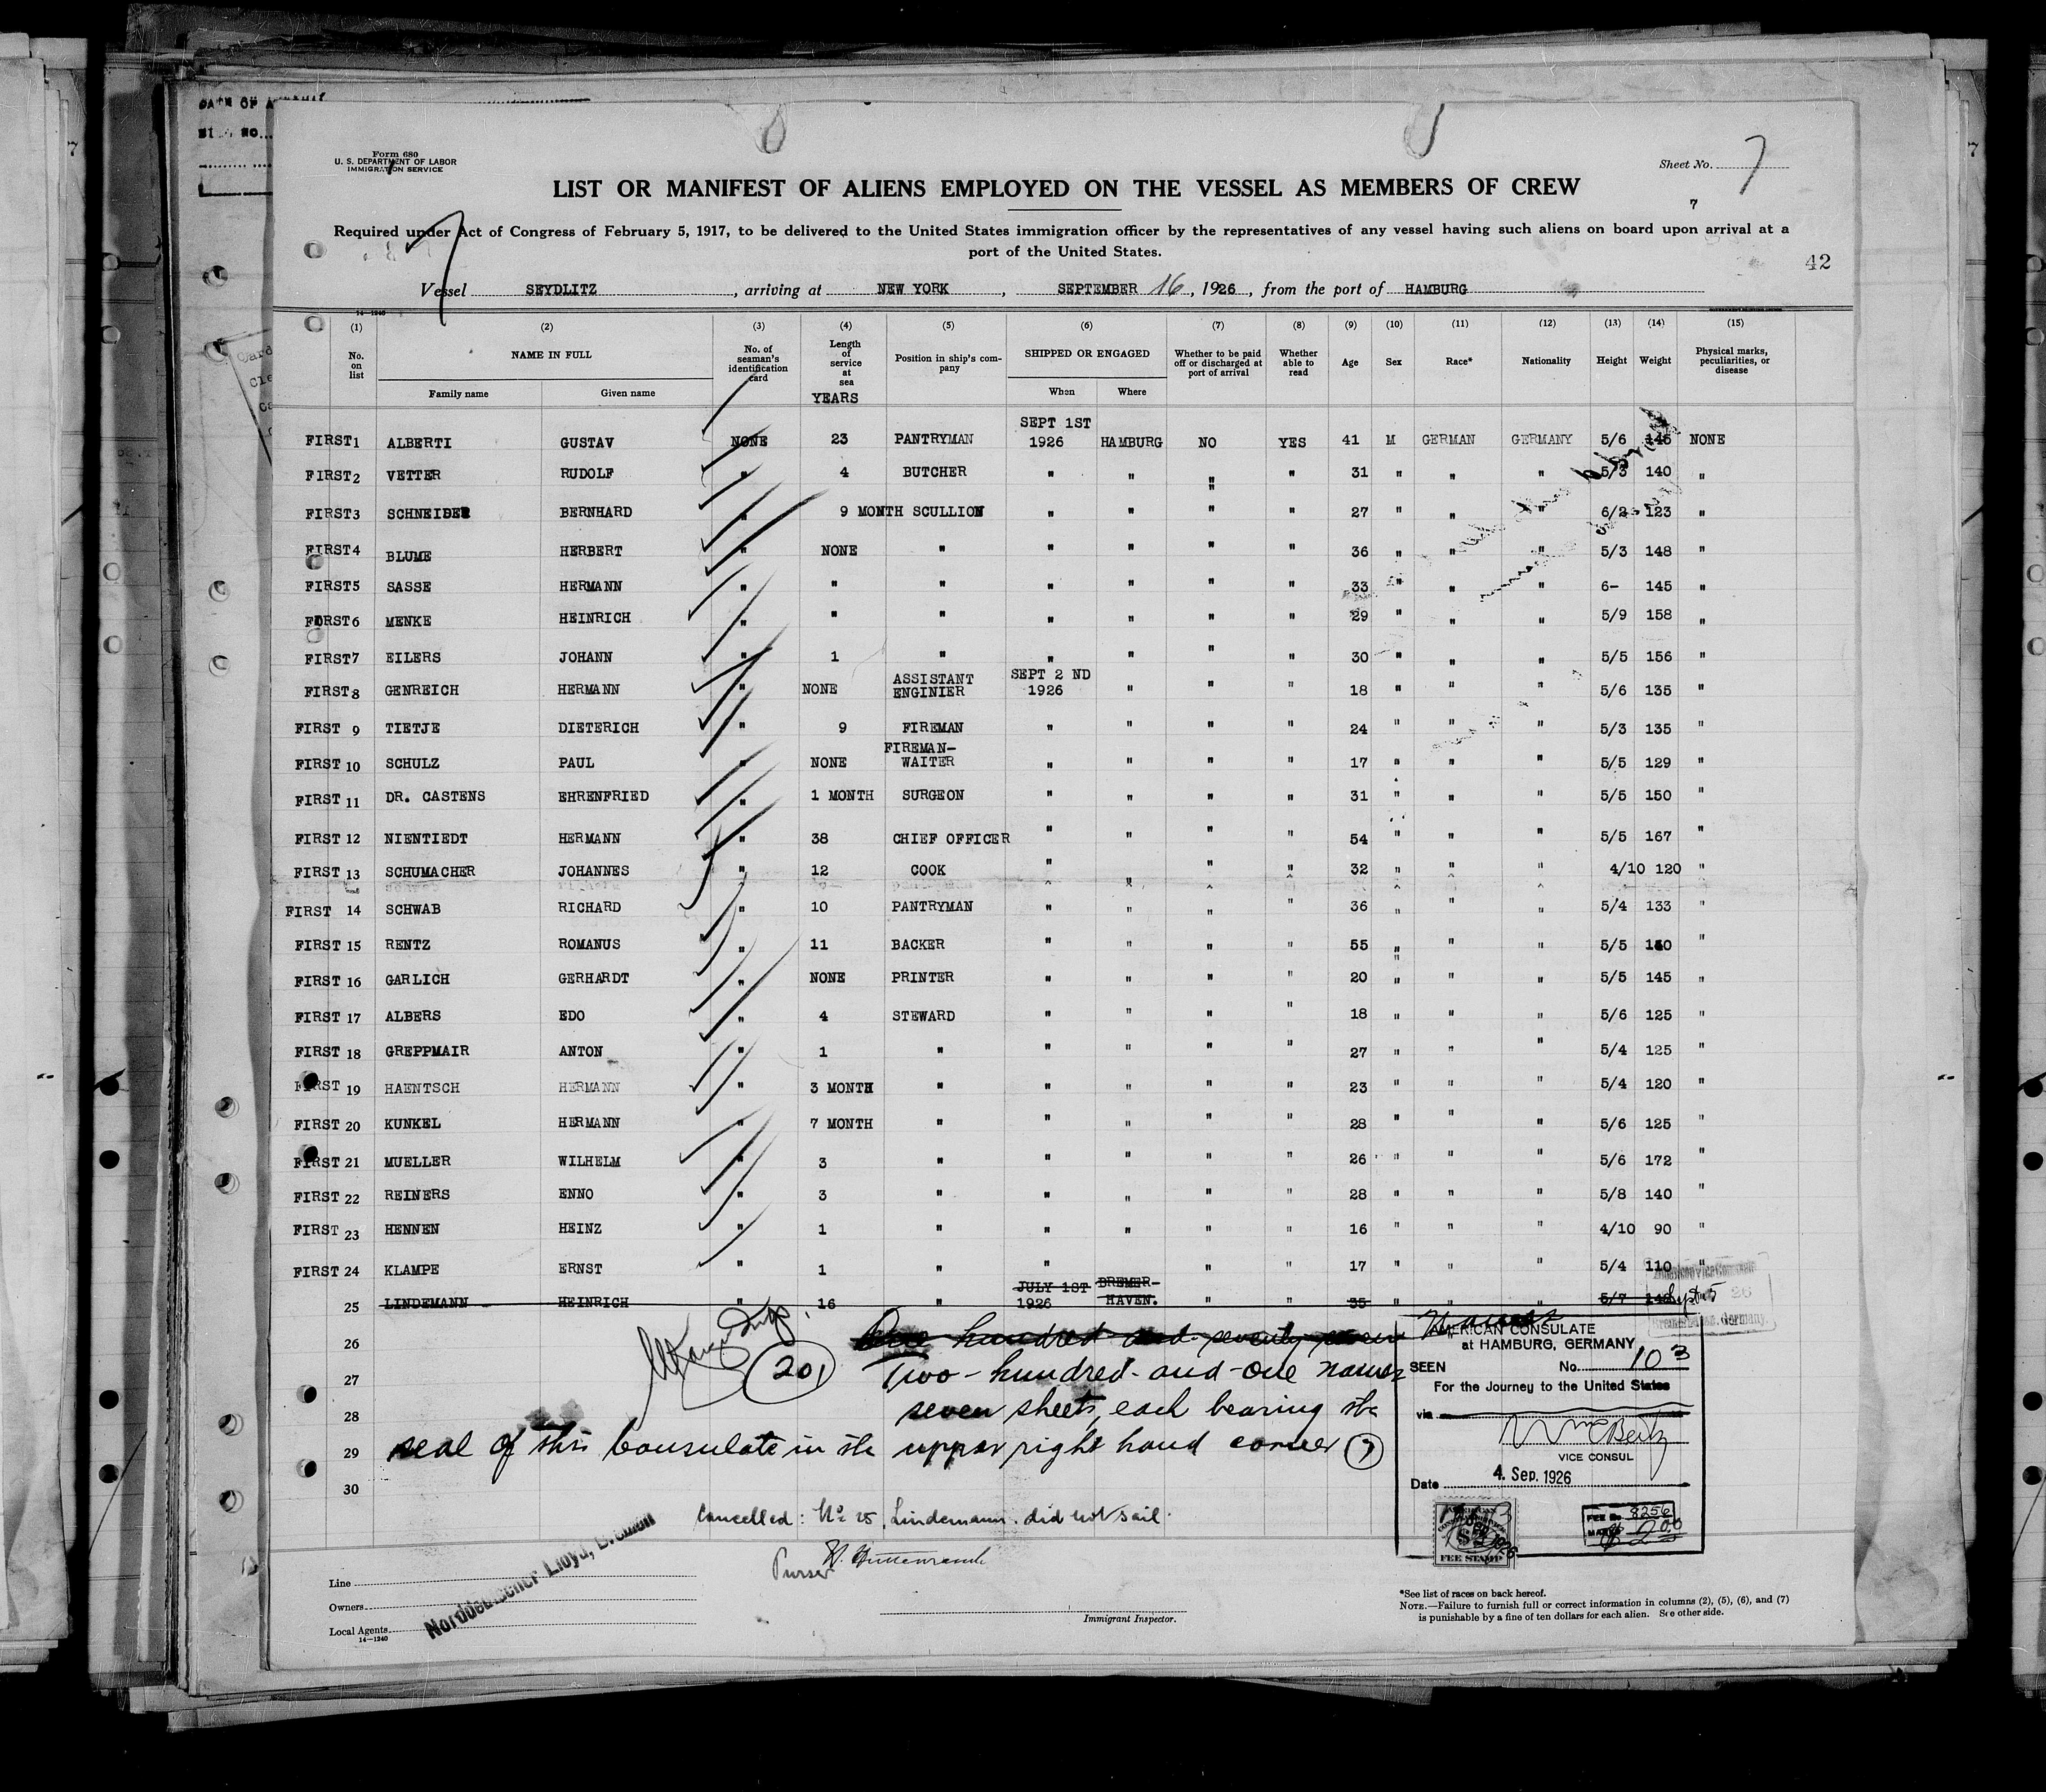 Form 680
U. S. DEPARTMENT OF LABOR
IMMIGRATION SERVICE
Sheet No. 7
LIST OR MANIFEST OF ALIENS EMPLOYED ON THE VESSEL AS MEMBERS OF CREW
7
Required under Act of Congress of February 5, 1917, to be delivered to the United States immigration officer by the representatives of any vessel having such aliens on board upon arrival at a
port of the United States.
42
Vessel SEYDLITZ, arriving at NEW YORK, SEPTEMBER 16, 1926, from the port of HAMBURG
(1) (2) (3) (4) (5) (6) (7) (8) (9) (10) (11) (12) (13) (14) (15)
No. on list NAME IN FULL Family name Given name No. of seaman's identification card Length of service at sea YEARS Position in ship's company SHIPPED OR ENGAGED When Where Whether to be paid off or discharged at port of arrival Whether able to read Age Sex Race* Nationality Height Weight Physical marks, peculiarities, or disease
FIRST 1 ALBERTI GUSTAV NONE 23 PANTRYMAN SEPT 1ST 1926 HAMBURG NO YES 41 M GERMAN GERMANY 5/6 145 NONE
FIRST 2 VETTER RUDOLF " 4 BUTCHER " " " " 31 " " " 5/3 140 "
FIRST 3 SCHNEIDER BERNHARD " 9 MONTH SCULLION " " " " 27 " " " 6/2 123 "
FIRST 4 BLUME HERBERT " NONE " " " " " 36 " " " 5/3 148 "
FIRST 5 SASSE HERMANN " " " " " " " 33 " " " 6- 145 "
FIRST 6 MENKE HEINRICH " " " " " " " 29 " " " 5/9 158 "
FIRST 7 EILERS JOHANN " 1 " " " " " 30 " " " 5/5 156 "
FIRST 8 GENREICH HERMANN " NONE ASSISTANT ENGINIER SEPT 2 ND 1926 " " " 18 " " " 5/6 135 "
FIRST 9 TIETJE DIETERICH " 9 FIREMAN " " " " 24 " " " 5/3 135 "
FIRST 10 SCHULZ PAUL " NONE FIREMAN-WAITER " " " " 17 " " " 5/5 129 "
FIRST 11 DR. CASTENS EHRENFRIED " 1 MONTH SURGEON " " " " 31 " " " 5/5 150 "
FIRST 12 NIENTIEDT HERMANN " 38 CHIEF OFFICER " " " " 54 " " " 5/5 167 "
FIRST 13 SCHUMACHER JOHANNES " 12 COOK " " " " 32 " " " 4/10 120 "
FIRST 14 SCHWAB RICHARD " 10 PANTRYMAN " " " " 36 " " " 5/4 133 "
FIRST 15 RENTZ ROMANUS " 11 BACKER " " " " 55 " " " 5/5
FIRST 16 GARLICH GERHARDT " NONE PRINTER " " " " 20 " " " 5/5 145 "
FIRST 17 ALBERS EDO " 4 STEWARD " " " " 18 " " " 5/6 125 "
FIRST 18 GREPPMAIR ANTON " 1 " " " " " 27 " " " 5/4 125 "
FIRST 19 HAENTSCH HERMANN " 3 MONTH " " " " " 23 " " " 5/4 120 "
FIRST 20 KUNKEL HERMANN " 7 MONTH " " " " " 28 " " " 5/6 125 "
FIRST 21 MUELLER WILHELM " 3 " " " " " 26 " " " 5/6 172 "
FIRST 22 REINERS ENNO " 3 " " " " " 28 " " " 5/8 140 "
FIRST 23 HENNEN HEINZ " 1 " " " " " 16 " " " 4/10 90 "
FIRST 24 KLAMPE ERNST " 1 " " " " " 17 " " " 5/4 110 "
25 LINDEMANN HEINRICH " 16 " JULY 1ST 1926 BREMER-HAVEN. " " 35 " " " 5/7
26 One hundred and seventy seven names
27 201 Two-hundred-and-one names
28 seven sheets, each bearing the
29 seal of this Consulate in the upper right hand corner 7
30
AMERICAN CONSULATE
at HAMBURG, GERMANY
SEEN No. 103
For the Journey to the United States
via
VICE CONSUL
Date 4. Sep. 1926
FEE No. 8256
FEE STAMP
Cancelled: No 25, Lindemann did not sail.
Purser
Line
Owners
Local Agents
14—1240
Norddeutscher Lloyd, Bremen
Immigrant Inspector.
*See list of races on back hereof.
NOTE.—Failure to furnish full or correct information in columns (2), (5), (6), and (7)
is punishable by a fine of ten dollars for each alien. See other side.